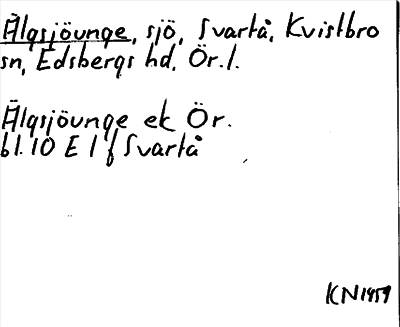 Älgsjöunge, sjö, Svartå, Kvistbro
sn, Edsbergs hd, Ör.l.
Älgsjöunge ek Ör.
bl. 10 E 1 f Svartå
KN 1959